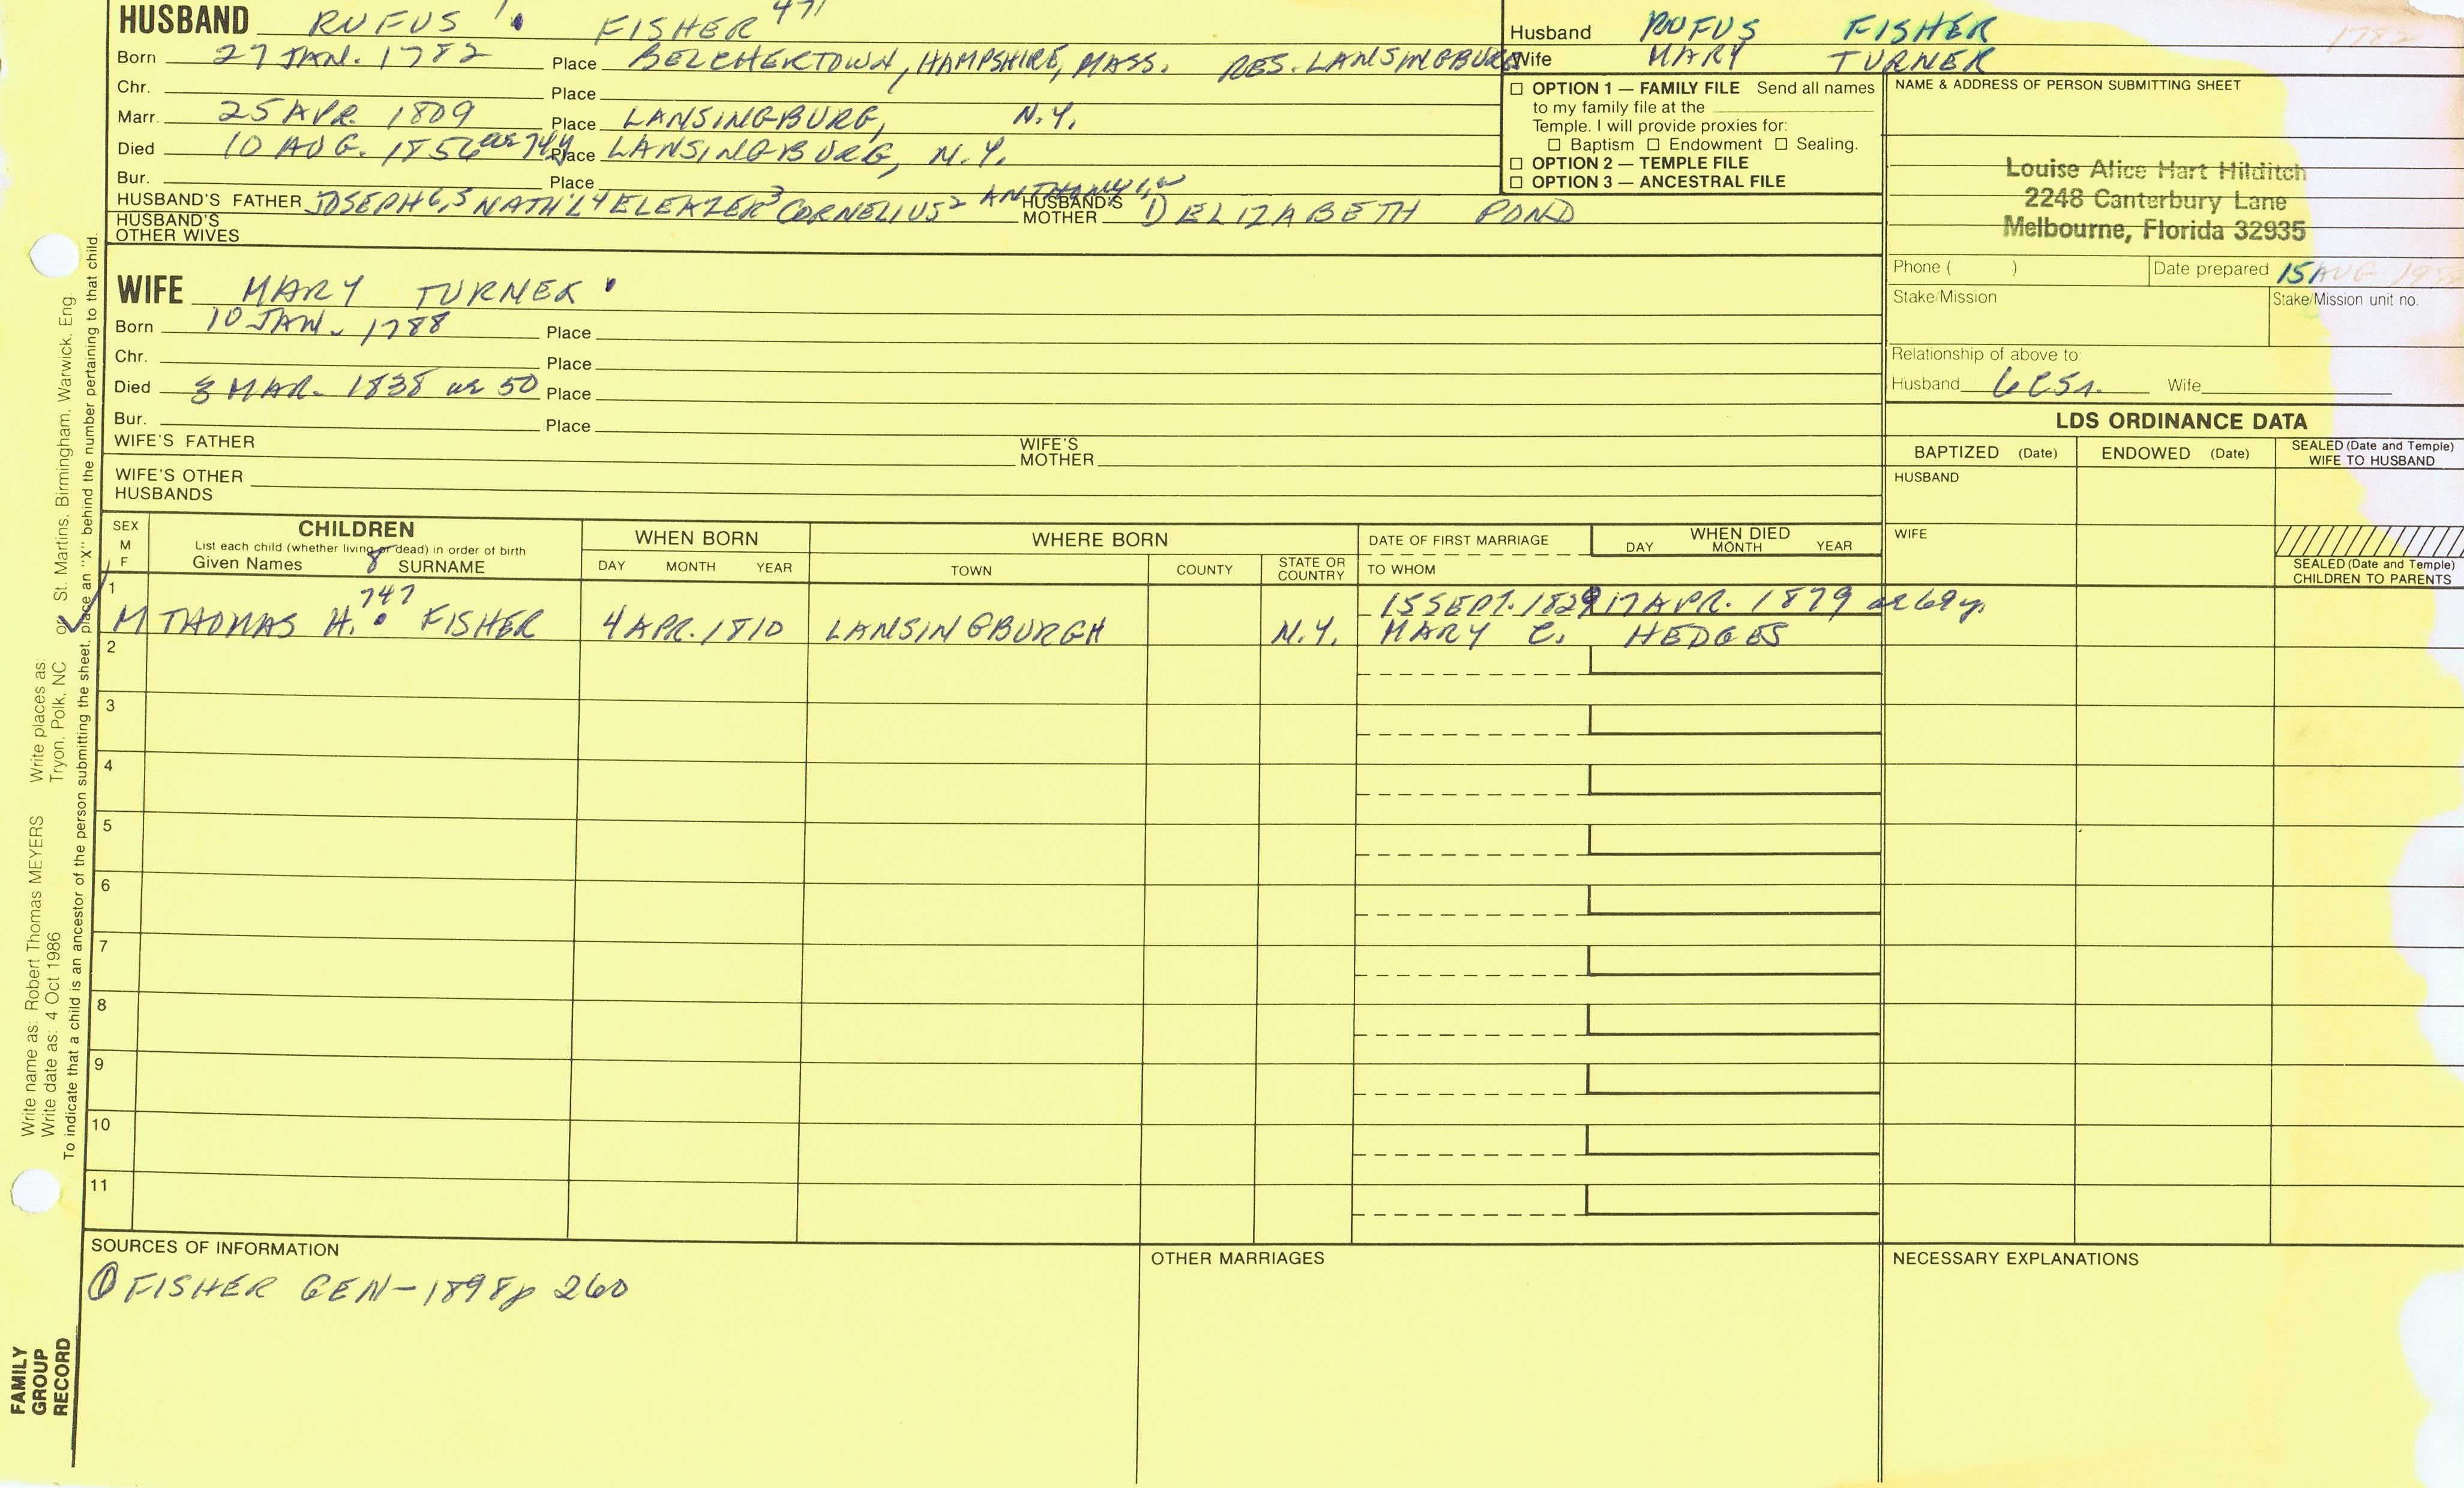 HUSBAND RUFUS 7. FISHER 471
Born 27 JAN. 1782 Place BELCHERTOWN, HAMPSHIRE, MASS. RES. LANSINGBURG
Chr. Place
Marr. 25 APR. 1809 Place LANSINGBURG, N.Y.
Died 10 AUG. 1856 ae 74y Place LANSINGBURG, N.Y.
Bur. Place
HUSBAND'S FATHER JOSEPH 6,5 NATH'L 4 ELEAZER 3 CORNELIUS 2 ANTHONY 1, HUSBAND'S MOTHER 1) ELIZABETH POND
HUSBAND'S OTHER WIVES
Husband RUFUS FISHER
Wife MARY TURNER
1782
☐ OPTION 1 — FAMILY FILE Send all names
to my family file at the
Temple. I will provide proxies for:
☐ Baptism ☐ Endowment ☐ Sealing.
☐ OPTION 2 — TEMPLE FILE
☐ OPTION 3 — ANCESTRAL FILE
NAME & ADDRESS OF PERSON SUBMITTING SHEET
Louise Alice Hart Hilditch
2248 Canterbury Lane
Melbourne, Florida 32935
Phone ( ) Date prepared 15 AUG
Stake/Mission Stake/Mission unit no.
Relationship of above to:
Husband Wife
WIFE MARY TURNER
Born 10 JAN. 1788 Place
Chr. Place
Died 3 MAR. 1838 ae 50 Place
Bur. Place
WIFE'S FATHER WIFE'S MOTHER
WIFE'S OTHER HUSBANDS
LDS ORDINANCE DATA
BAPTIZED (Date) ENDOWED (Date) SEALED (Date and Temple) WIFE TO HUSBAND
HUSBAND
WIFE
SEALED (Date and Temple) CHILDREN TO PARENTS
SEX M F
CHILDREN
List each child (whether living or dead) in order of birth
Given Names 8 SURNAME
WHEN BORN
DAY MONTH YEAR
WHERE BORN
TOWN COUNTY STATE OR COUNTRY
DATE OF FIRST MARRIAGE
TO WHOM
WHEN DIED
DAY MONTH YEAR
1 747 15 SEPT. 1829 17 APR. 1879 ae 69y.
M THOMAS H. FISHER 4 APR. 1810 LANSINGBURGH N.Y. MARY C. HEDGES
2
3
4
5
6
7
8
9
10
11
SOURCES OF INFORMATION
① FISHER GEN-1898 p 260
OTHER MARRIAGES
NECESSARY EXPLANATIONS
Write name as: Robert Thomas MEYERS Write places as: St. Martins, Birmingham, Warwick, Eng.
Write date as: 4 Oct 1986 Tryon, Polk, NC or
To indicate that a child is an ancestor of the person submitting the sheet, place an "X" behind the number pertaining to that child.
FAMILY
GROUP
RECORD